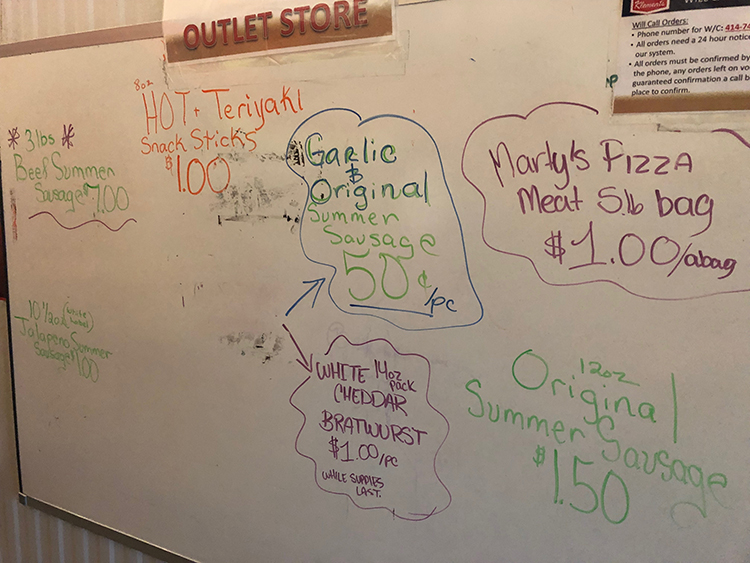 OUTLET STORE
Will Call Orders:
• Phone number for W/C: 414-74
• All orders need a 24 hour notice
our system.
• All orders must be confirmed by
the phone, any orders left on vo
guaranteed confirmation a call b
place to confirm.
* 3 lbs *
Beef Summer
Sausage $7.00
8oz
HOT + Teriyaki
Snack Sticks
$1.00
Garlic
&
Original
Summer
Sausage
50¢
/pc
Marty's PIZZA
Meat 5lb bag
$1.00/abag
10 1/2oz
Jalapeno Summer
Sausage $1.00
WHITE 14oz
pack
CHEDDAR
BRATWURST
$1.00/pc
WHILE SUPPLIES
LAST.
12oz
Original
Summer Sausage
$1.50